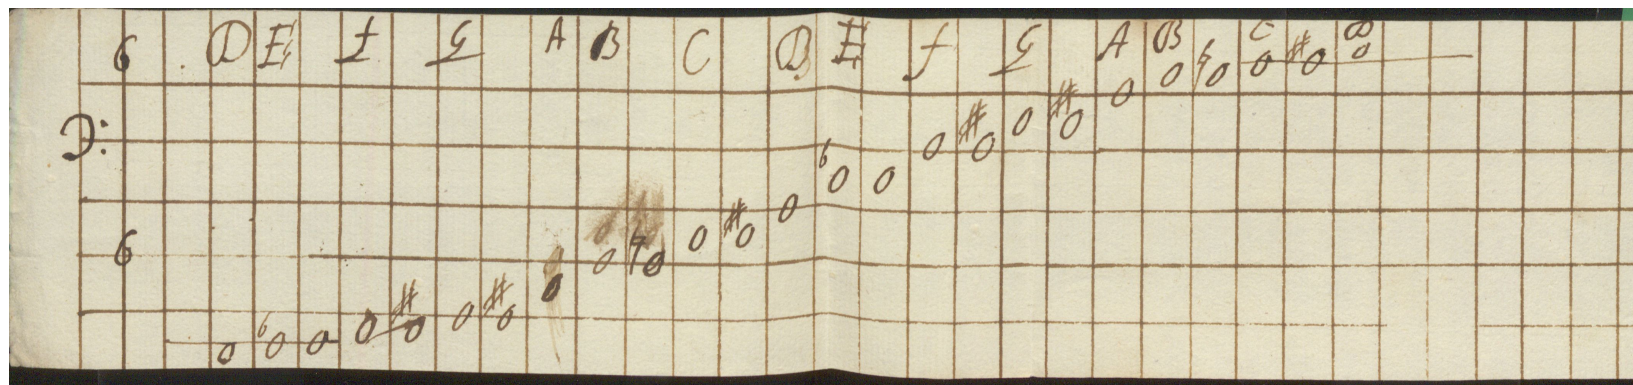 6 D E F G A B C D E F G A B C D